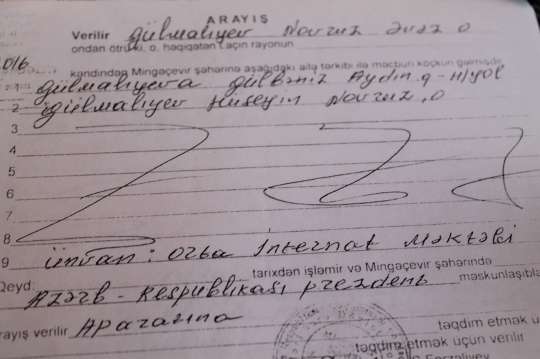 ARAYIŞ
Verilir gülmalıyev Novruz Əvəz o
ondan ötrü ki, o, həqiqətən Laçın rayonun
016
kəndindən Mingəçevir şəhərinə aşağıdakı ailə tərkibi ilə məcburi köçkün gəlmişdir
gülmalıyeva gülbəniz Aydın q - H/yol
2 gülmalıyev Hüseyin Novruz o
3
4
5
6
7
8
9 Ünvan: Orta İnternat Məktəbi
Qeyd: tarixdən işləmir və Mingəçevir şəhərində
Azərb - Respublikası prezdent məskunlaşıb
arayış verilir Aparatına
təqdim etmək ü
təqdim etmək üçün verilir